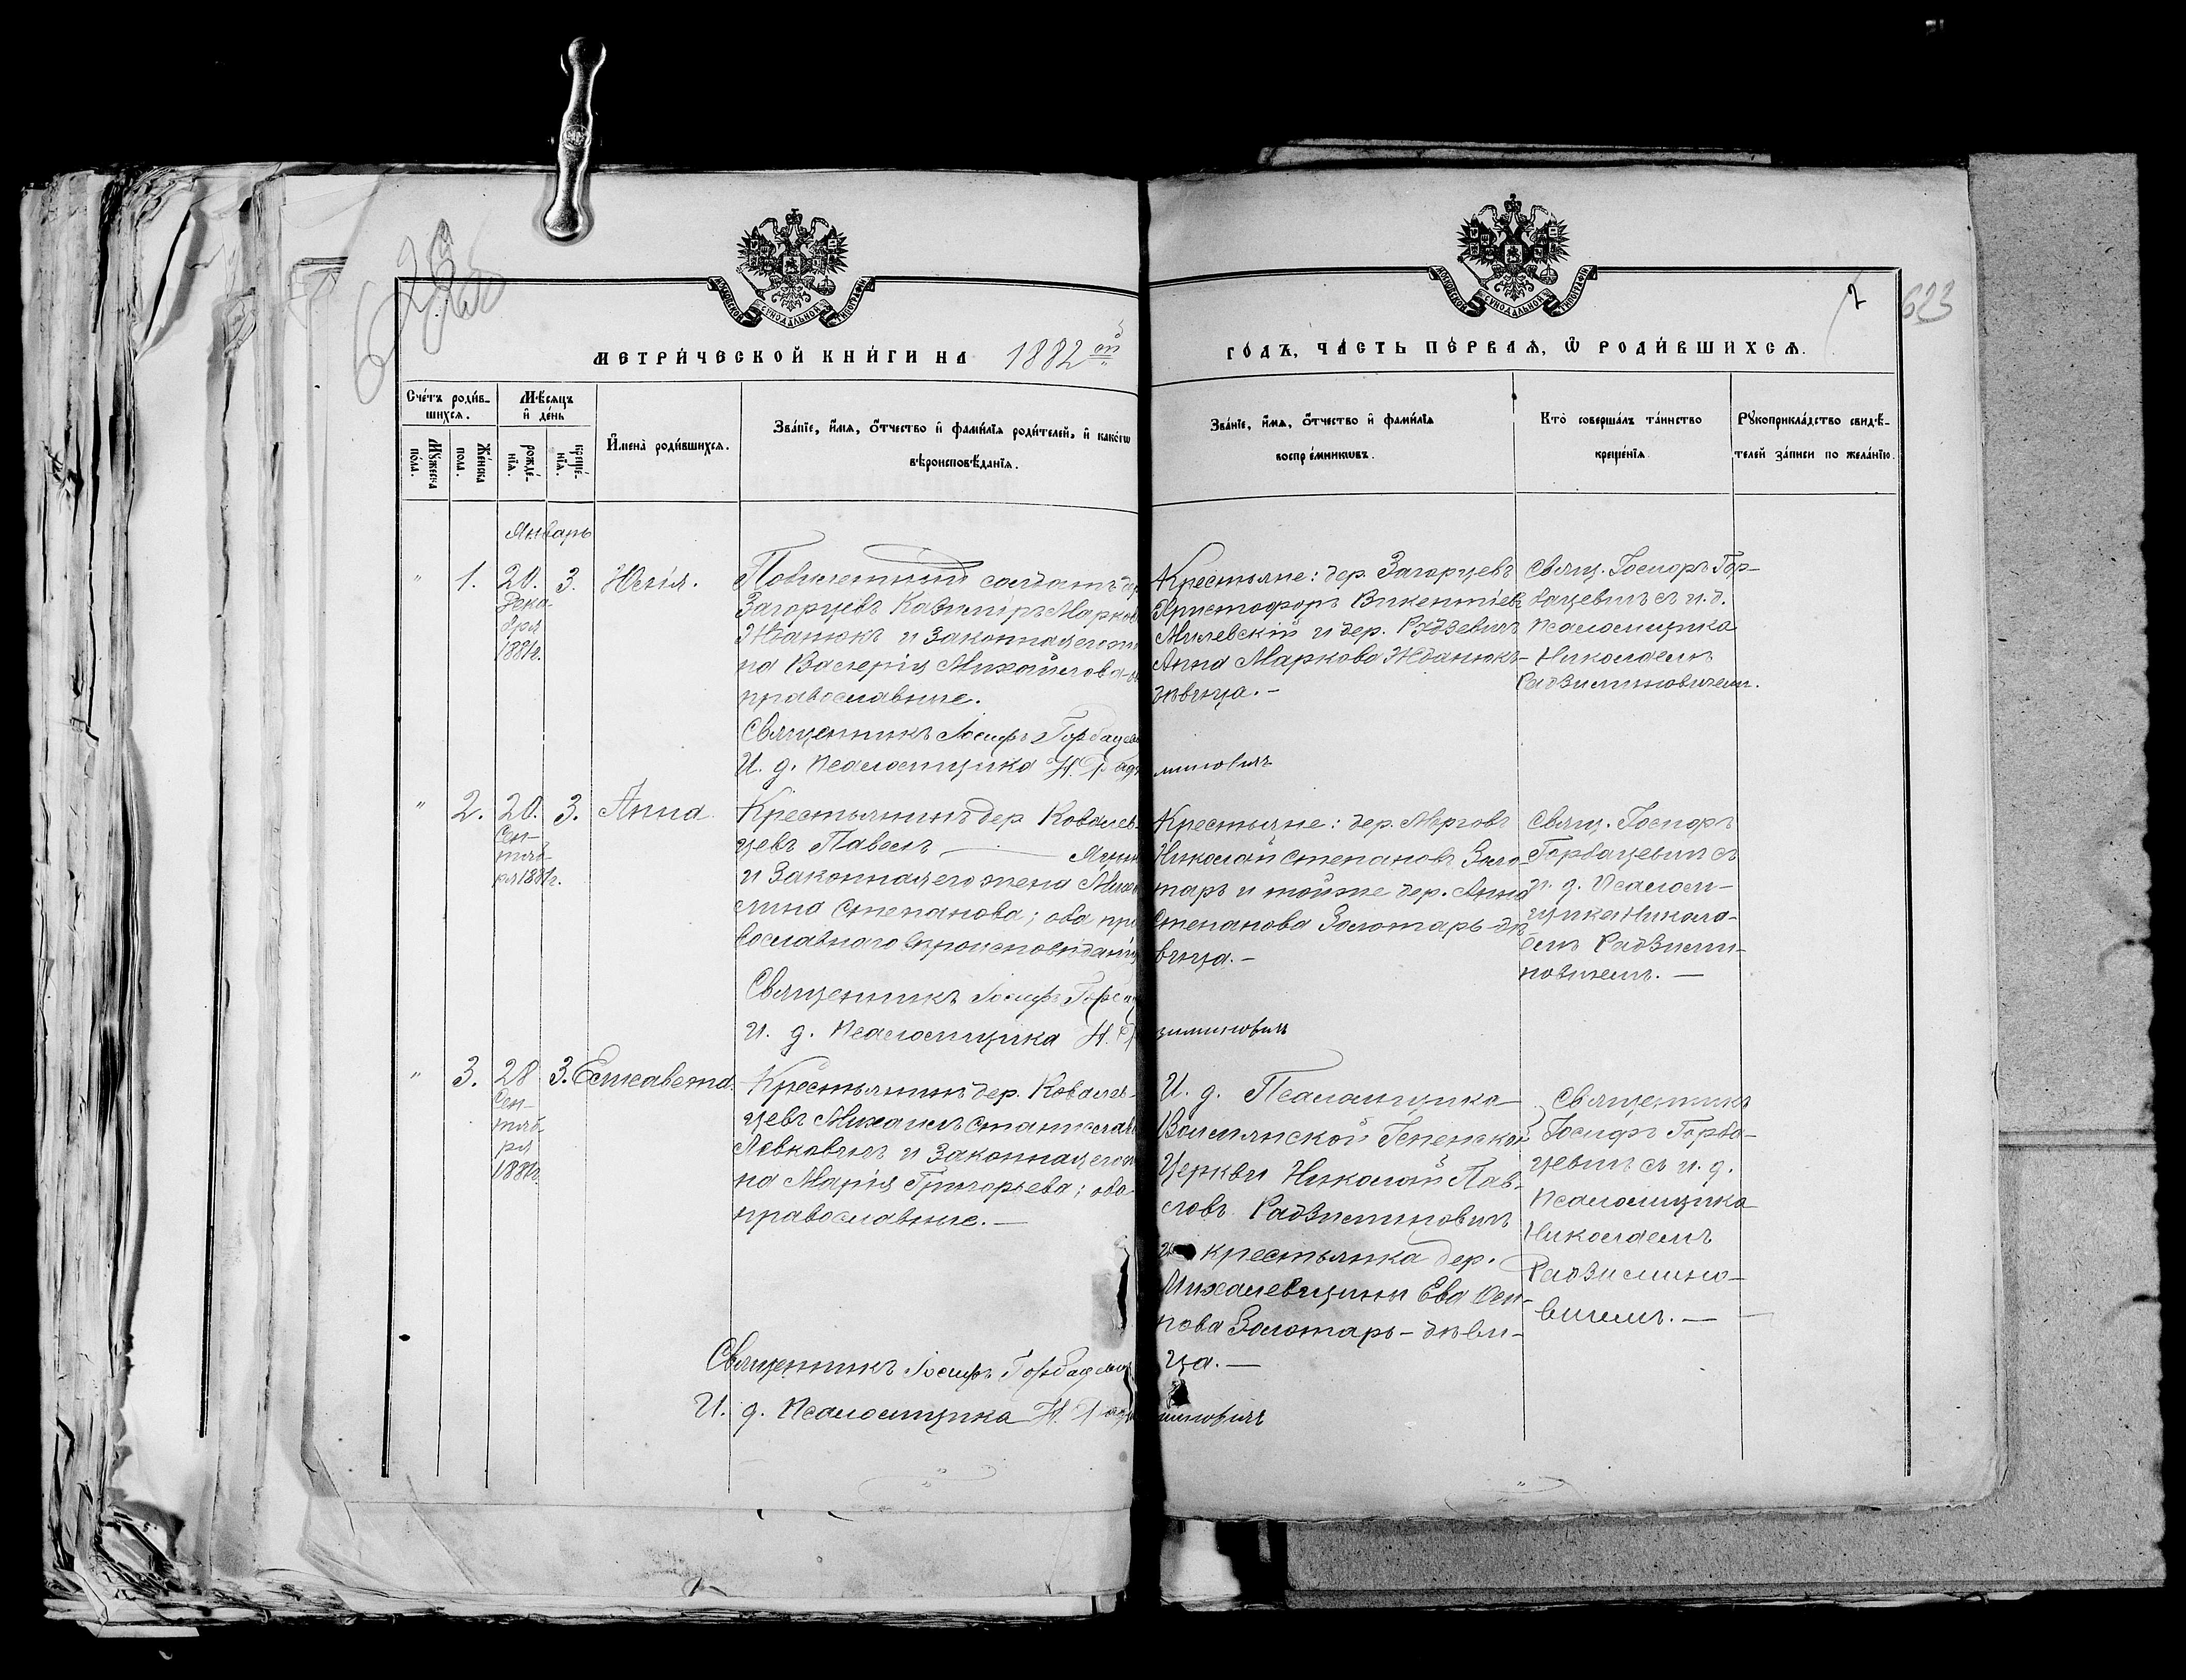 623
МЕТРИ́ЧЕСКОЙ КНИ́ГИ НА 1882 ой
ГО́ДЪ, ЧА́СТЬ ПЕ́РВАЯ, Ѡ РОДИ́ВШИХСѦ.
Сче́тъ роди́в-
шихсѧ.
Мꙋ́жеска
по́ла.
Же́нска
пола.
Мѣ́сѧцъ
и́ де́нь
рожде́-
нїѧ.
креще́-
нїѧ.
И҆мена̀ роди́вшихсѧ.
Зва́нїе, и҆́мѧ, ѻ҆́тчество и҆ фами́лїѧ роди́телей, и҆ како́гѡ
вѣроисповѣ́данїѧ.
Зва́нїе, и҆́мѧ, ѻ҆́тчество и҆ фами́лїѧ
воспрїе́мникѡвъ.
Кто̀ соверша́лъ та́инство
креще́нїѧ
Рꙋкоприкла́дство свидѣ́-
телей за́писи по жела́нїю.
Январь
" 1. 20. 3. Юлія.
Дека-
бря
1881г.
солдатъ
Загорцевъ Марков
Жданюкъ и Законная его
на Валерія Михайлова
православные.
Священникъ Іосифъ Горбацев
И. д. Псаломщика Н. Радзи
Крестьяне: дер. Загорцевъ
Христофоръ Викентіевъ
Милевскій и дер.
Анна Маркова Жданюкъ-
дѣвица.-
миновичъ
Свящ. Іосифъ Гор-
бацевичъ съ и. д.
Псаломщика
Николаемъ
Радзиминовичемъ.
" 2. 20. 3. Анна
Сен-
тяб-
ря 1881г.
Крестьянинъ дер. Ковалев
цевъ Павелъ
и Законная его жена Миха
лина Степанова; оба пра
вославнаго вѣроисповѣданія
Священникъ Іосифъ Горбац
И. д. Псаломщика Н. Ра
Крестьяне: дер.
Николай Степановъ Золо-
таръ и тойже дер. Анна
Степанова Золотарь-дѣ
вица.-
зиминовичъ
Свящ. Іосифъ
Горбацевичъ съ
и. д. Псалом-
щика Никола-
емъ Радзими-
новичемъ.-
" 3. 28 3. Елисавета.
Сен-
тяб-
ря
1881г.
Крестьянинъ дер. Ковалев-
цевъ Михаилъ Станислав
Левковичъ и Законная его
на Марія Григорьева; оба
православные.-
Священникъ Іосифъ Горбацевич
И. д. Псаломщика Н. Радзи
И. д. Псаломщика
Церкви Николай Пав-
ловъ Радзиминовичъ
и крестьянка дер.
Михалевщины Ева Оси-
пова Золотарь-дѣви-
ца.-
миновичъ
Священникъ
Іосифъ Горба-
цевичъ съ и. д.
Псаломщика
Николаемъ
Радзимино-
вичемъ.-